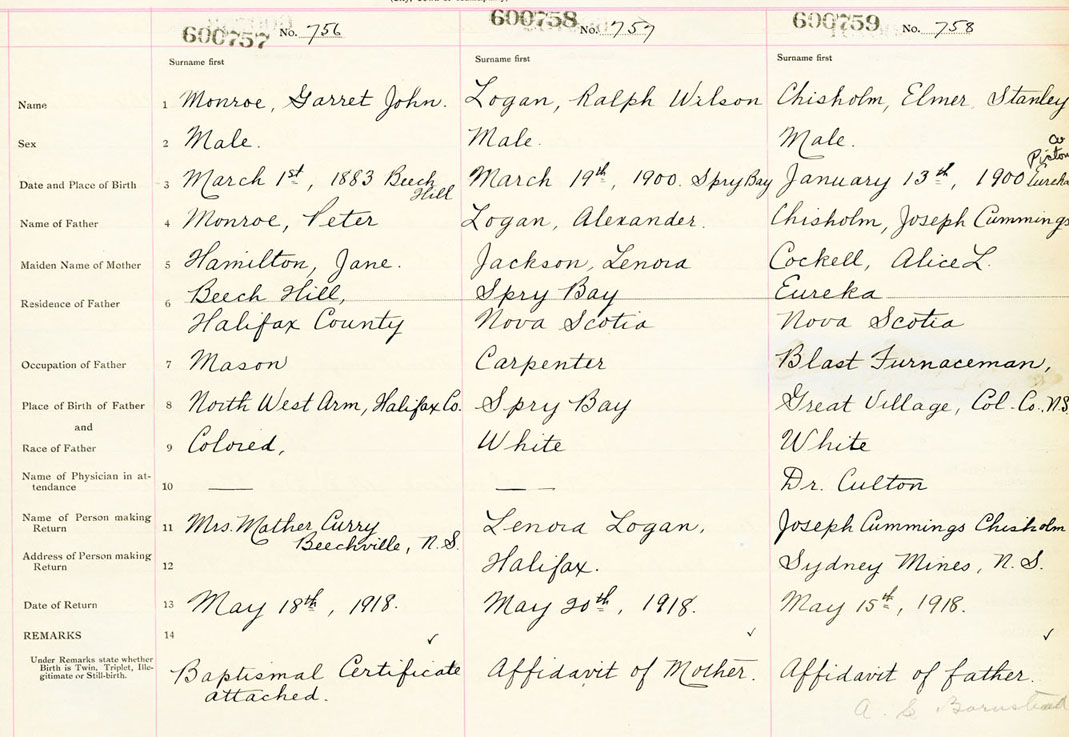 600757 No. 756 600758 No. 757 600759 No. 758
Surname first Surname first Surname first
Name 1 Monroe, Garret John. Logan, Ralph Wilson Chisholm, Elmer Stanley
Sex 2 Male. Male. Male.
Co
Pictou
Date and Place of Birth 3 March 1st, 1883 Beech Hill March 19th, 1900. Spry Bay January 13th, 1900 Eureka
Name of Father 4 Monroe, Peter Logan, Alexander. Chisholm, Joseph Cummings
Maiden Name of Mother 5 Hamilton, Jane. Jackson, Lenora Cockell, Alice L.
Residence of Father 6 Beech Hill, Spry Bay Eureka
Halifax County Nova Scotia Nova Scotia
Occupation of Father 7 Mason Carpenter Blast Furnaceman,
Place of Birth of Father 8 North West Arm, Halifax Co. Spry Bay Great Village, Col. Co. N.S.
and
Race of Father 9 Colored, White White
Name of Physician in at-
tendance 10 —— —— Dr. Culton
Name of Person making
Return 11 Mrs. Mather Curry Lenora Logan, Joseph Cummings Chisholm
Beechville, N.S.
Address of Person making
Return 12 Halifax. Sydney Mines, N.S.
Date of Return 13 May 18th, 1918. May 20th, 1918. May 15th, 1918.
REMARKS 14 ✓ ✓ ✓
Under Remarks state whether
Birth is Twin, Triplet, Ille-
gitimate or Still-birth.
Baptismal Certificate Affidavit of Mother. Affidavit of father.
attached.